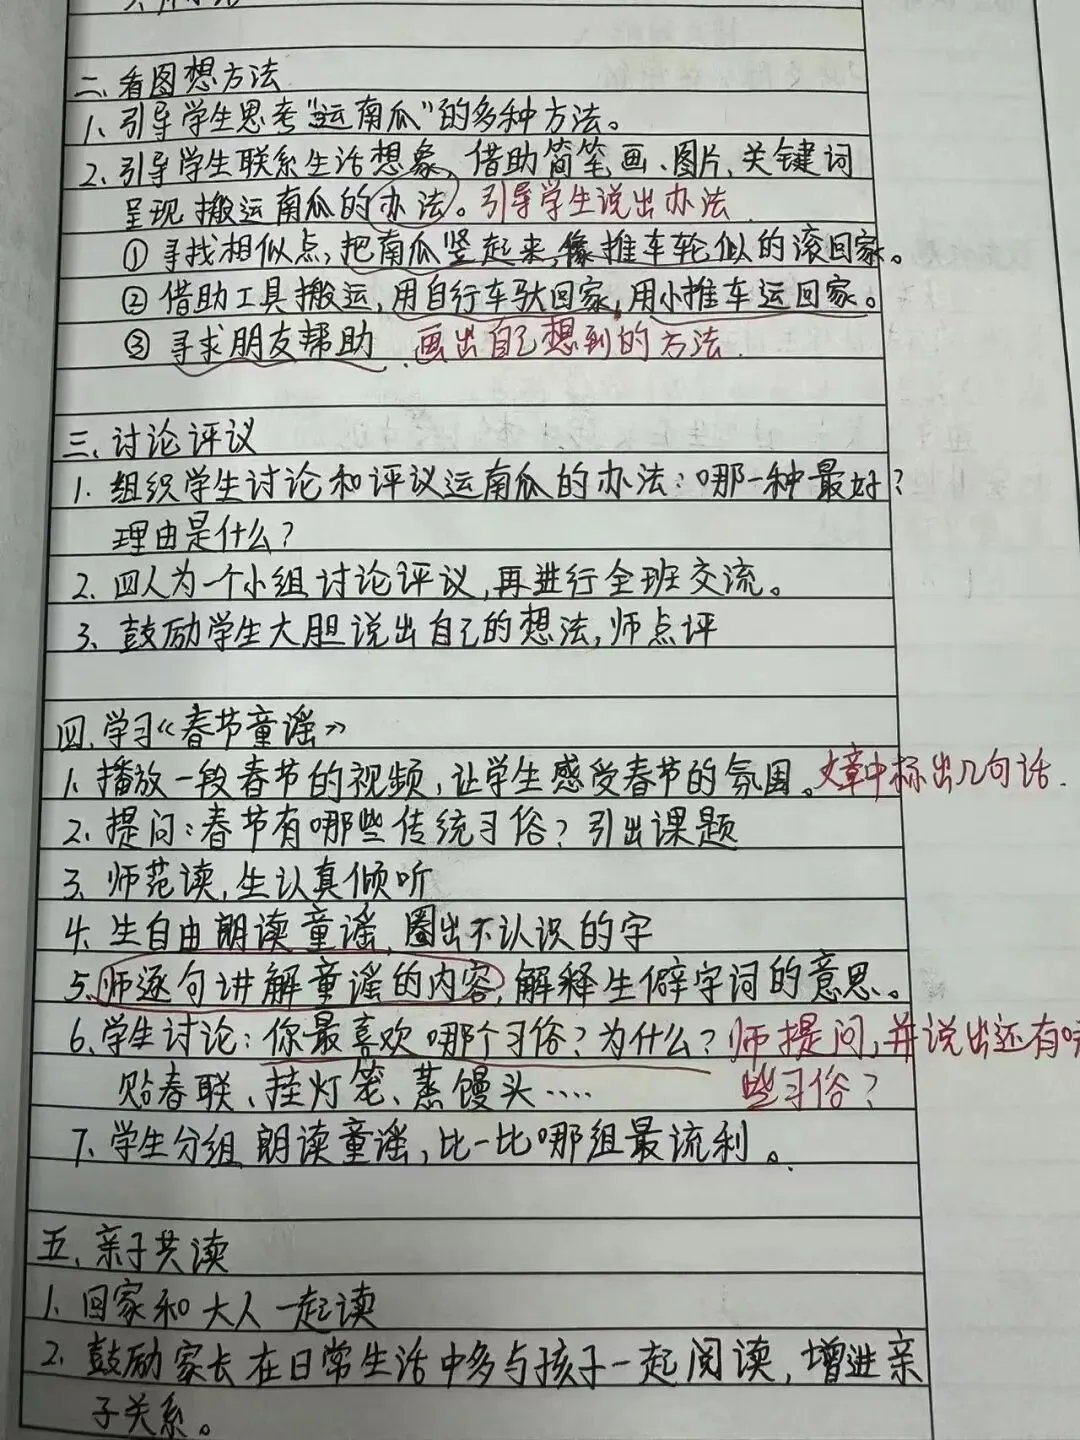 二、看图想方法
1、引导学生思考“运南瓜”的多种方法。
2、引导学生联系生活想象，借助简笔画、图片、关键词
呈现搬运南瓜的办法。引导学生说出办法
①寻找相似点，把南瓜竖起来，像推车轮似的滚回家。
②借助工具搬运，用自行车驮回家，用小推车运回家。
③寻求朋友帮助 画出自己想到的方法
三、讨论评议
1、组织学生讨论和评议运南瓜的办法：哪一种最好？
理由是什么？
2、四人为一个小组讨论评议，再进行全班交流。
3、鼓励学生大胆说出自己的想法，师点评
四、学习《春节童谣》
1、播放一段春节的视频，让学生感受春节的氛围。文章中标出几句话.
2、提问：春节有哪些传统习俗？引出课题
3、师范读，生认真倾听
4、生自由朗读童谣，圈出不认识的字
5、师逐句讲解童谣的内容，解释生僻字词的意思。
6、学生讨论：你最喜欢哪个习俗？为什么？师提问，并说出还有哪
贴春联、挂灯笼、蒸馒头…… 些习俗？
7、学生分组朗读童谣，比一比哪组最流利。
五、亲子共读
1、回家和大人一起读
2、鼓励家长在日常生活中多与孩子一起阅读，增进亲
子关系。